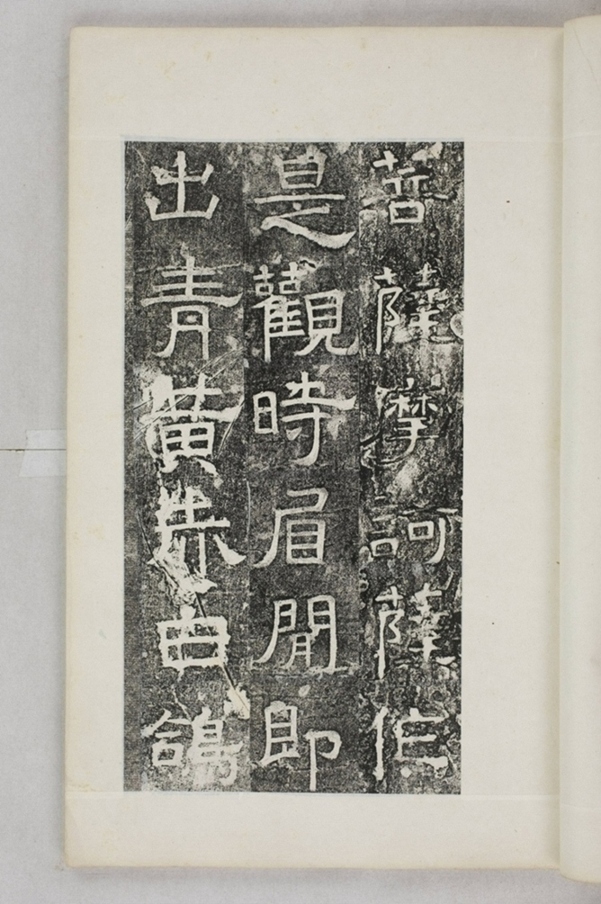 菩薩摩訶薩作
是觀時眉閒即
出青黃赤白鴿